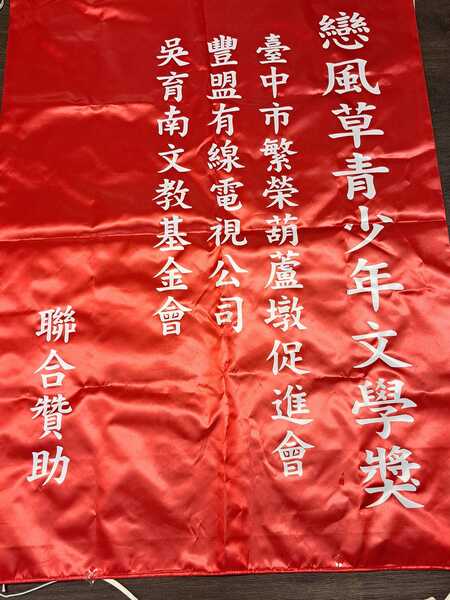 戀風草青少年文學獎
臺中市繁榮葫蘆墩促進會
豐盟有線電視公司
吳育南文教基金會
聯合贊助